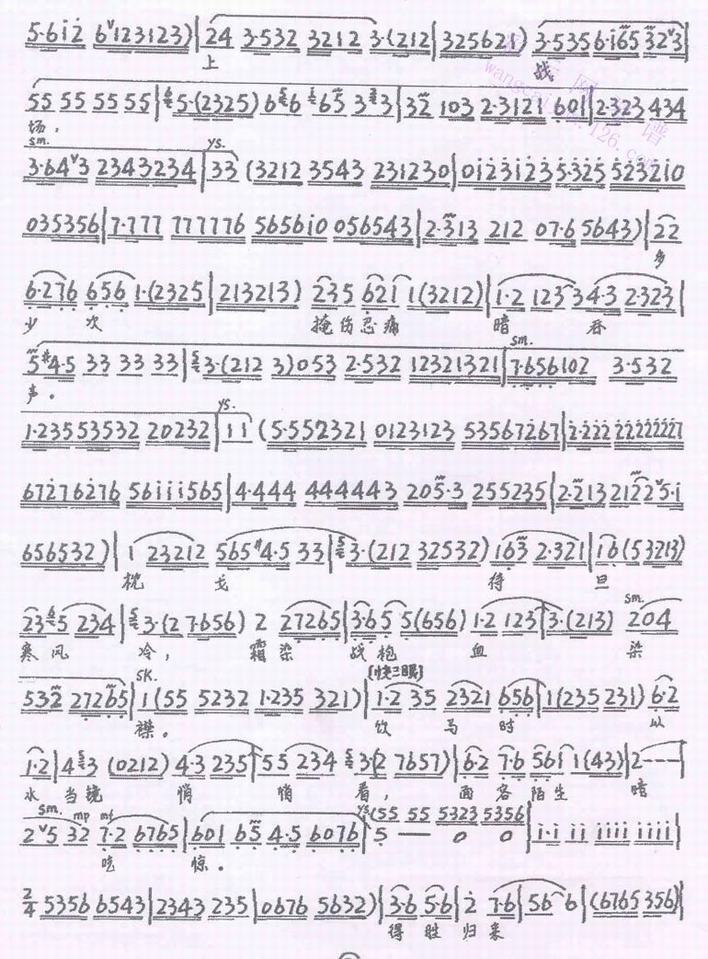 5·6i2 6123123)|24 3·532 3212 3·(212|325621) 3·535 6·i65 323|
上 战
55 55 55 55|5·(2325) 656 165 33|32 103 2·3121 601|2·323 434
场，
sm. ys.
3·643 2343234|33 (3212 3543 231230|0123123 5·325 523210
035356|7·777 777776 5656i0 056543|2·313 212 07·6 5643)|22
多
6·276 656 1·(2325|213213) 235 621 1(3212)|1·2 123 34·3 2·323|
少 次 掩伤忍痛 暗 吞
sm.
5#4·5 33 33 33|3·(212 3)053 2·532 12321321|7·656102 3·532
声。
ys.
1·23553532 20232|11 (5·552321 0123123 53567267|2·222 22222227
67276276 56iii565|4·444 444443 205·3 255235|2·21321225·i
656532)|1 23212 565#4·5 33|3·(212 32532) 163 2·321|16(53213)
枕 戈 待 旦
sm.
235 234|3·(2 7·656) 2 27265|3·65 5(656) 1·2 123|3·(213) 204
寒风 冷， 霜染 战袍 血 染
SK. [快三眼]
532 27265|1(55 5232 1·235 321)|1·2 35 2321 656|1(235 231) 6·2
襟。 饮 马 时 以
1·2|43 (0212) 4·3 235|55 234 3(2 7657)|6·2 7·6 561 1(43)|2---|
水 当镜 悄 悄 看， 面容陌生 暗
sm. mp mf ys.
25 32 7·2 6765|601 65 4·5 6076|5 — 0 0|i·i ii iiii iiii|
(55 55 5323 5356
吃 惊。
2/4 5356 6543|2343 235|0676 5632)|3·6 5·6|2 7·6|56 6|(6765 356)|
得胜 归来